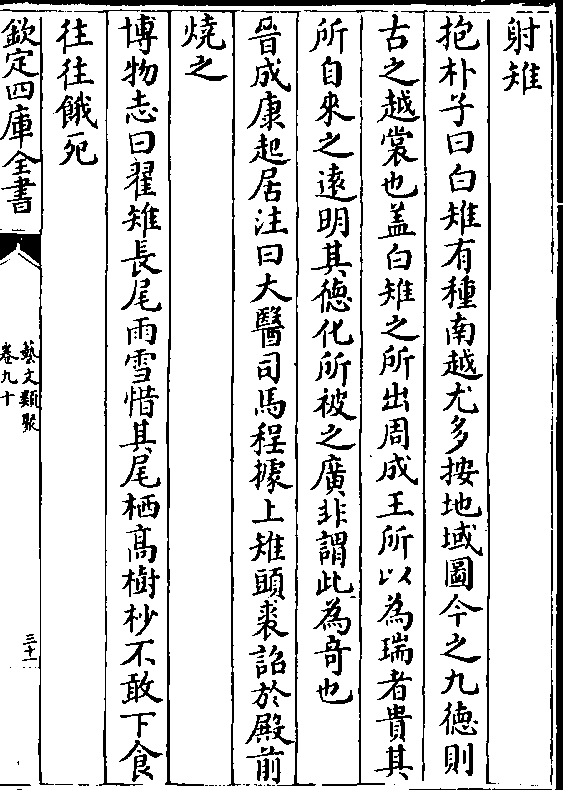 射雉
抱朴子曰白雉有種南越尤多按地域圖今之九德則
古之越裳也盖白雉之所出周成王所以為瑞者貴其
所自來之遠明其德化所被之廣非謂此為奇也
晉咸康起居注曰大醫司馬程據上雉頭裘詔於殿前
燒之
博物志曰翟雉長尾雨雪惜其尾栖高樹杪不敢下食
往往餓死
欽定四庫全書
藝文類聚
卷九十
三十一